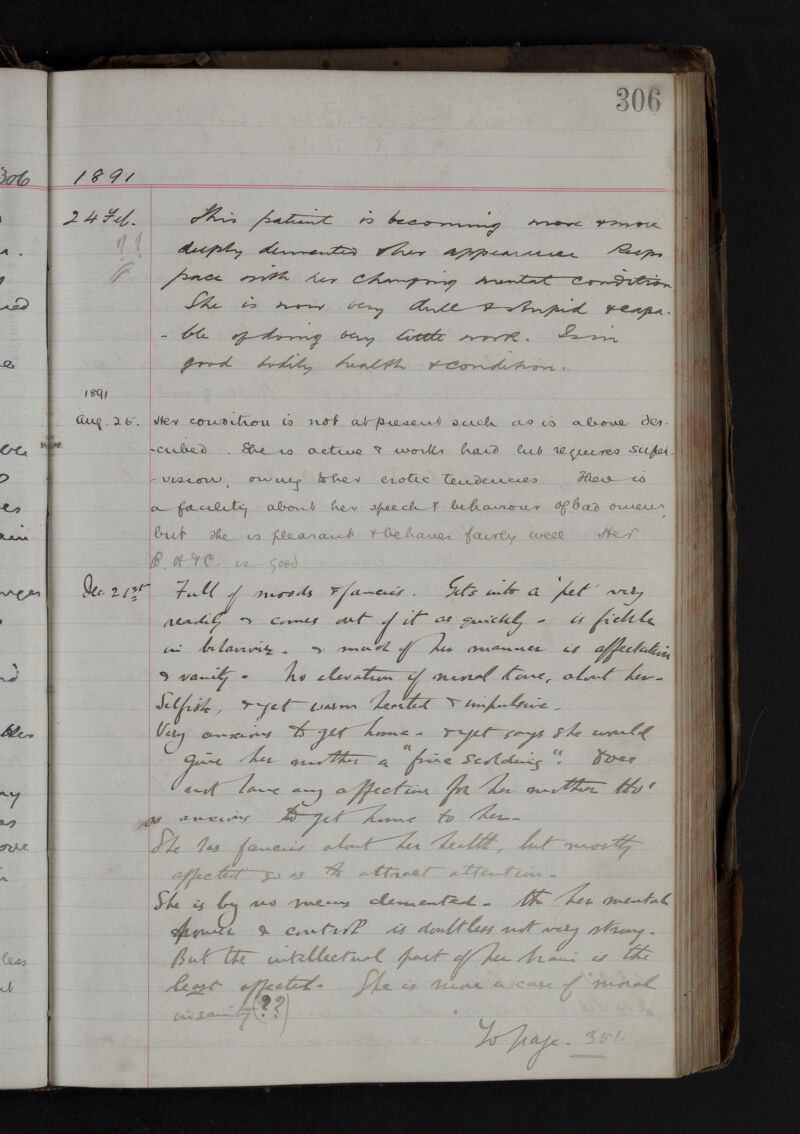 306
306
1891
24 Feb. This patient is becoming more & more
?? deeply demented & her appearance keeps
pace with her changing mental condition
She is now very dull & stupid & capa-
-ble of doing very little work. Is in
good bodily health & condition.
1891
Aug. 25. Her condition is not at present such as is above des-
-cribed. She is active & works hard but requires super-
-vision, owing to her erotic tendencies. There is
a facility about her speech & behaviour of bad omen,
but she is pleasant & behaves fairly well. Her
B. H & C. is good
Dec. 21st Full of moods & fancies. Gets into a 'pet' very
readily & comes out of it as quickly - is fickle
in behaviour - & much of her manner is affectation
& vanity. No elevation of moral tone, about her -
Selfish, & yet warm hearted & impulsive.
Very anxious to get home - & yet says she would
give her mother a "fine scolding". Does
not have any affection for her mother tho'
so anxious to get home to her -
She has fancies about her health, but mostly
affected so as to attract attention -
She is by no means demented - tho her mental
power & control is doubtless not very strong -
But the intellectual part of her brain is the
least affected - She is more a case of 'moral
insanity (??)
To page. 351.